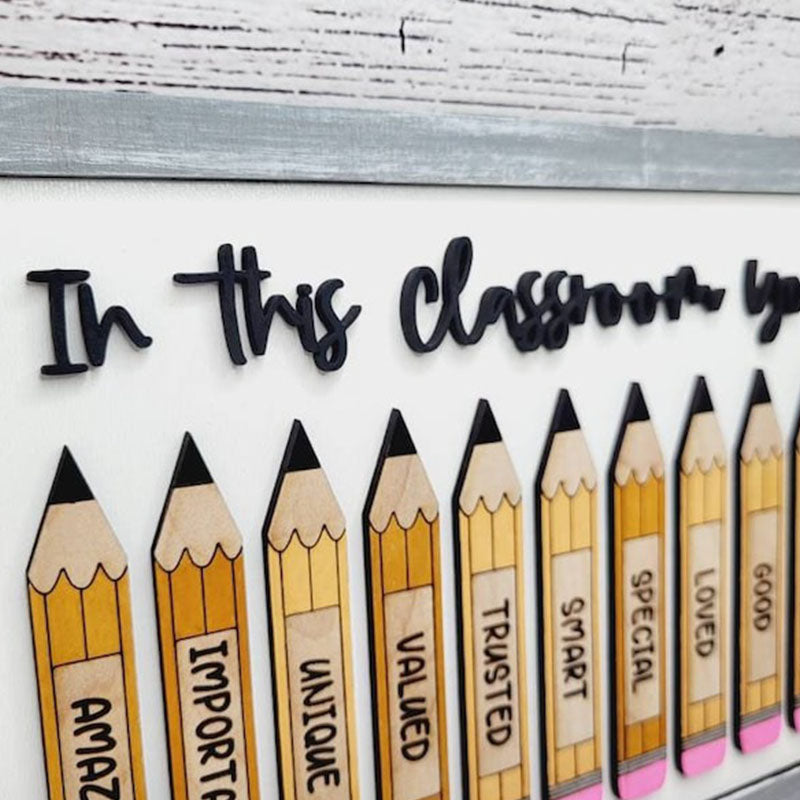 In this Classroom yo
AMAZ
IMPORTA
UNIQUE
VALUED
TRUSTED
SMART
SPECIAL
LOVED
GOOD